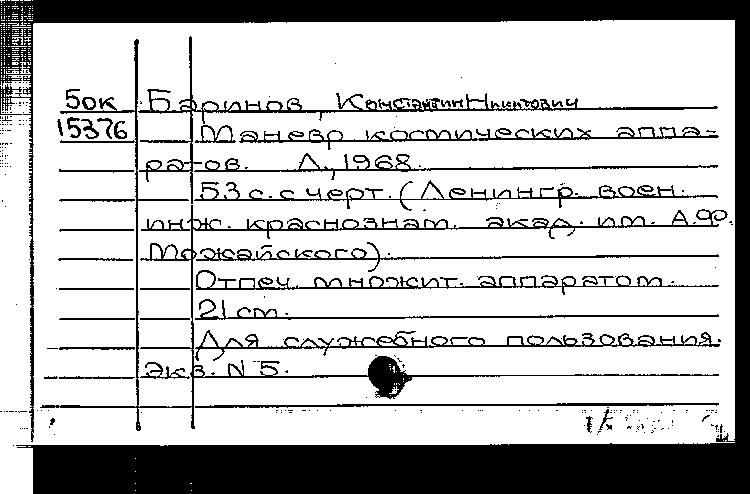 5ок Баринов, Константин Никитович
15376 Маневр космических аппа-
ратов. Л., 1968.
53 с. с черт. (Ленингр. воен.
инж. краснознам. акад. им. А.Ф.
Можайского).
Отпеч. множит. аппаратом.
21 см.
Для служебного пользования.
Экз. N 5.